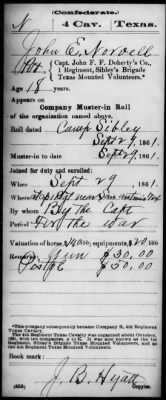 (Confederate.)
N 4 Cav. Texas.
John E. Norvell
Pvt., Capt. John F. F. Doherty's Co.,
Regiment, Sibley's Brigade
Texas Mounted Volunteers.*
Age 18 years.
Appears on
Company Muster-in Roll
of the organization named above.
Roll dated Camp Sibley
Sept 29, 1861.
Muster-in to date Sept 29, 1861.
Joined for duty and enrolled:
When Sept 29, 1861.
Where near San Antonio Tex
By whom By the Capt
Period For the War
Valuation of horse, $ 100; equipments, $ 20 100
Remarks: Gun $30.00
Pistol $30.00
*This company subsequently became Company
Texas Cavalry.
The 4th Regiment Texas Cavalry was organized about October,
1861, with ten companies, A to K. It was also known as the 1st
Regiment, Sibley's Brigade Texas Mounted Volunteers, and as the
4th Regiment Texas Mounted Volunteers.
Book mark:
J. B. Hyatt
Copyist.